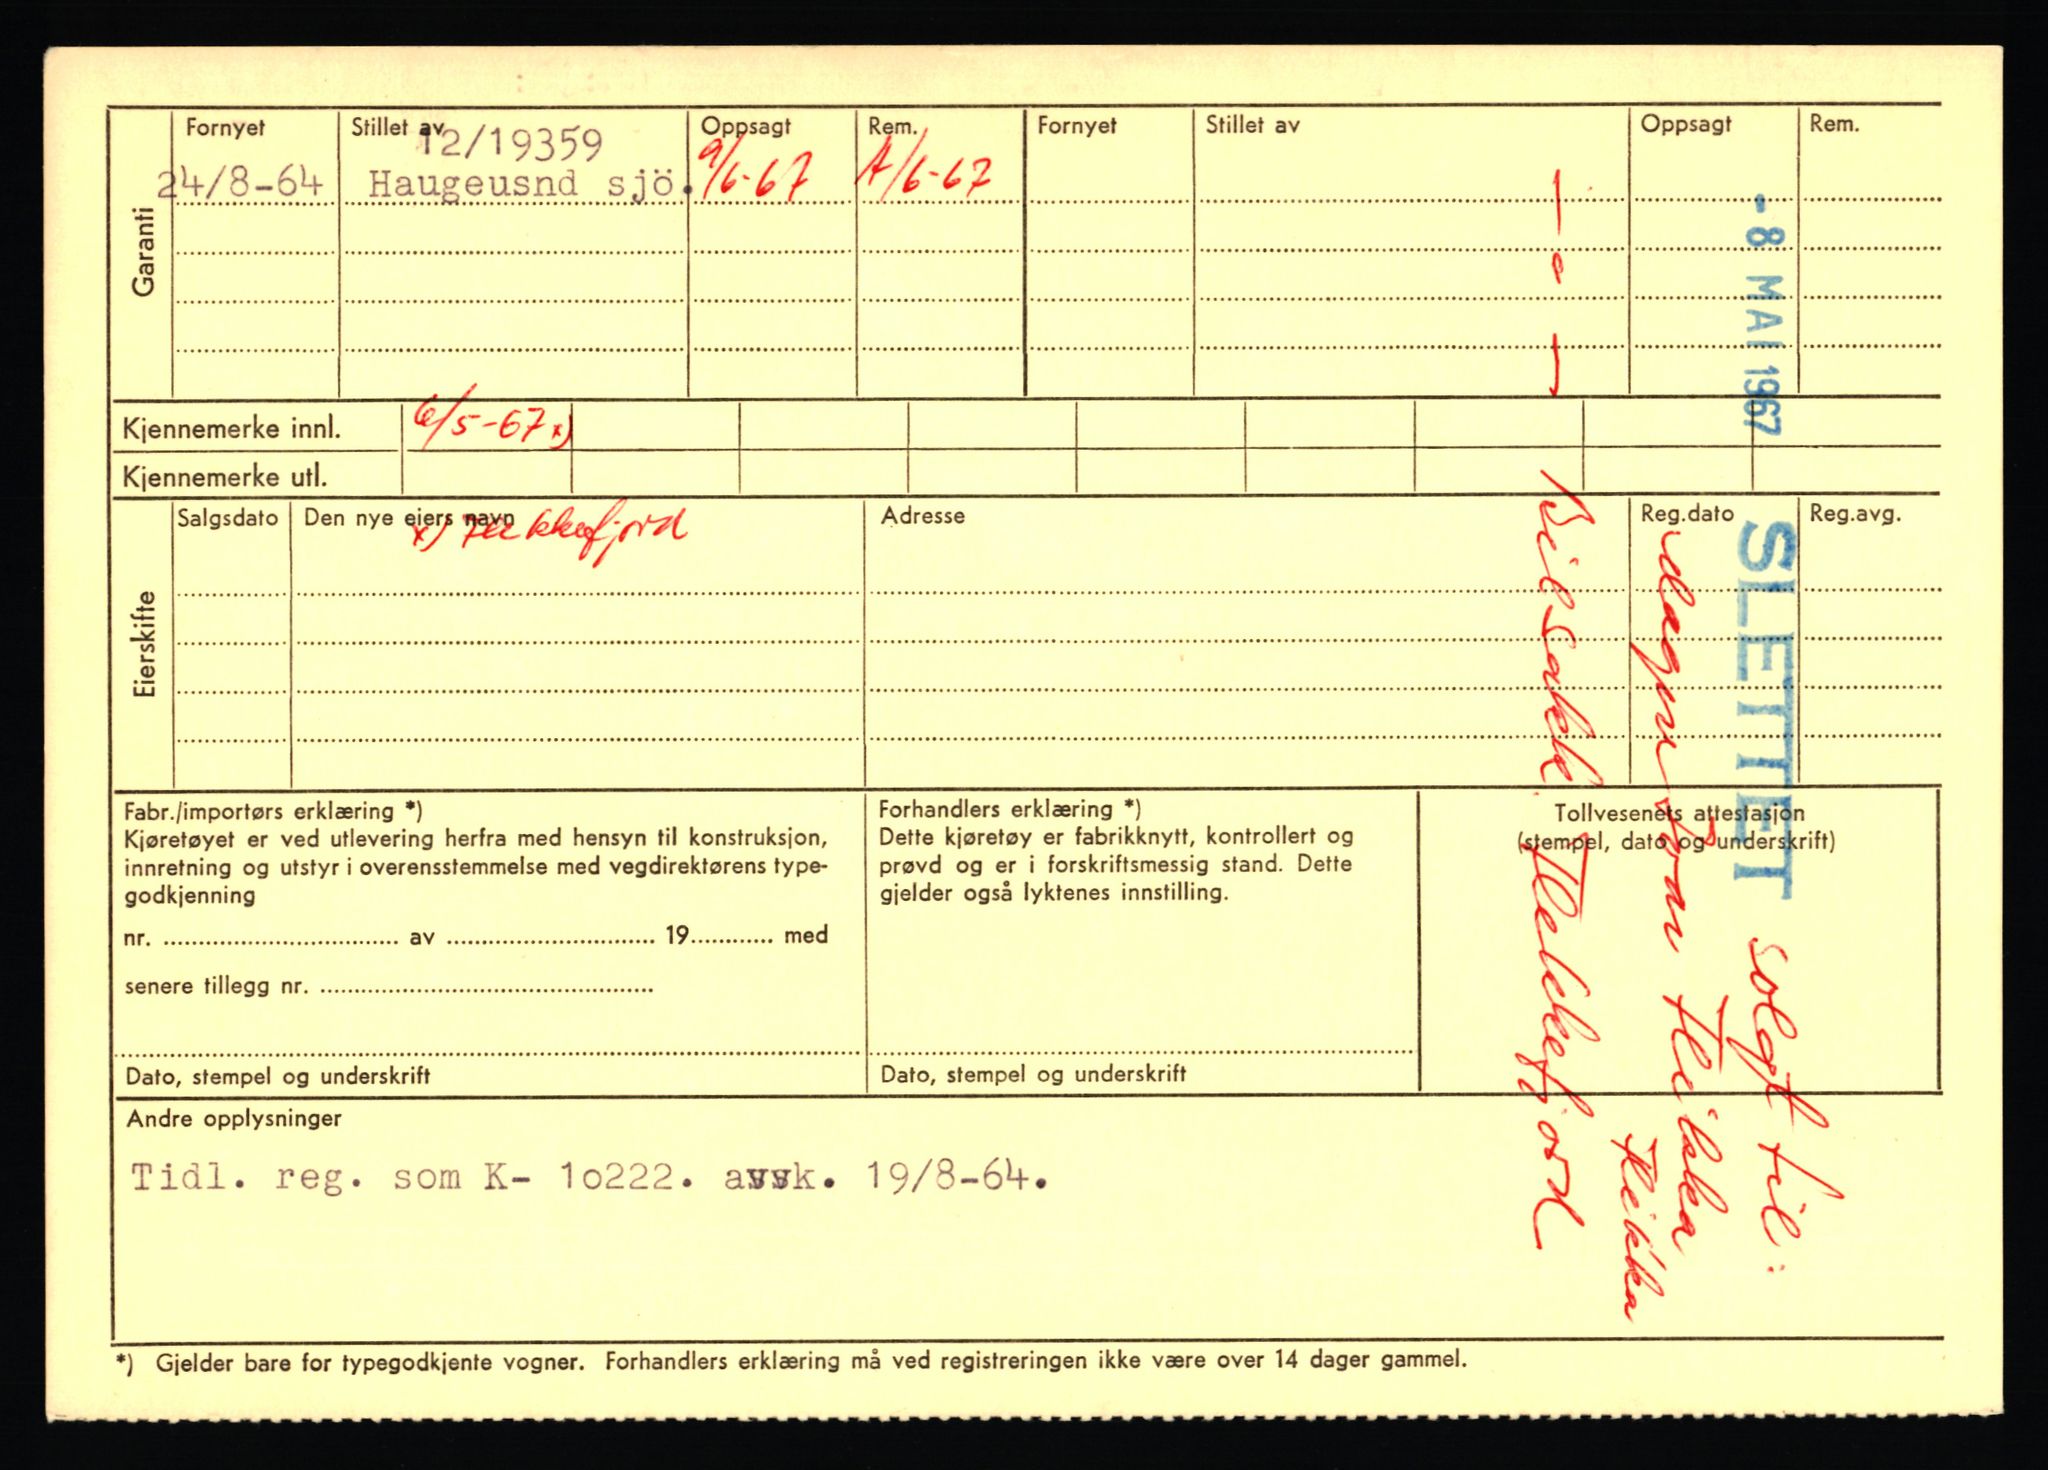 Garanti
Fornyet Stillet av Oppsagt Rem. Fornyet Stillet av Oppsagt Rem.
12/19359
24/8-64 Haugeusnd sjö. 9/6-67 A/6-67
Kjennemerke innl. 6/5-67 x)
Kjennemerke utl.
Eierskifte
Salgsdato Den nye eiers navn Adresse Reg.dato Reg.avg.
x)
Fabr./importørs erklæring *)
Kjøretøyet er ved utlevering herfra med hensyn til konstruksjon,
innretning og utstyr i overensstemmelse med vegdirektørens type-
godkjenning
nr. av 19 med
senere tillegg nr.
Dato, stempel og underskrift
Forhandlers erklæring *)
Dette kjøretøy er fabrikknytt, kontrollert og
prøvd og er i forskriftsmessig stand. Dette
gjelder også lyktenes innstilling.
Dato, stempel og underskrift
Tollvesenets attestasjon
(stempel, dato og underskrift)
Andre opplysninger
Tidl. reg. som K- 1o222. avsk. 19/8-64.
*) Gjelder bare for typegodkjente vogner. Forhandlers erklæring må ved registreringen ikke være over 14 dager gammel.
- 8 MAI 1967
SLETTET solgt til:
Flikka
Flikka
Bilsakk. Flekkefjord
— o —